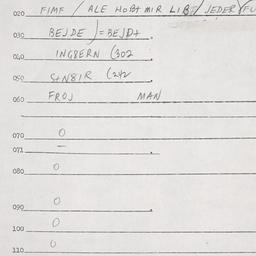 020 FIMF / ALE HOBT MIR LIB / JEDER FU
030 BEJDE ) = BEJDT
040 INGBERN (302
050 (242
060 FROJ MAN
070 0
071 -
080 0
090 0
100 0
110 0